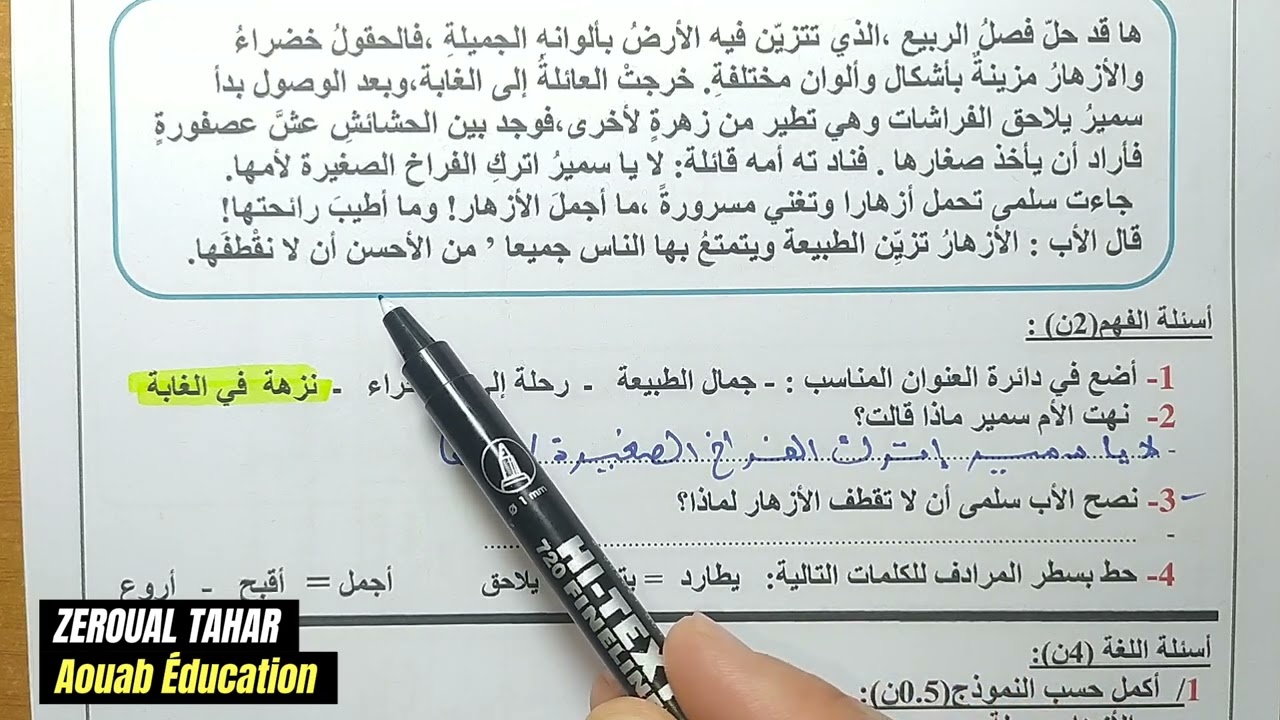 ها قد حلّ فصلُ الربيع ،الذي تتزيّن فيه الأرضُ بألوانه الجميلةِ ،فالحقولُ خضراءُ
والأزهارُ مزينةٌ بأشكال وألوان مختلفةِ. خرجتْ العائلةُ إلى الغابة،وبعد الوصول بدأ
سميرُ يلاحق الفراشات وهي تطير من زهرةٍ لأخرى،فوجد بين الحشائشِ عشَّ عصفورةٍ
فأراد أن يأخذ صغارها . فناد ته أمه قائلة: لا يا سميرُ اتركِ الفراخ الصغيرة لأمها.
جاءت سلمى تحمل أزهارا وتغني مسرورةً ،ما أجملَ الأزهار! وما أطيبَ رائحتها!
قال الأب : الأزهارُ تزيِّن الطبيعة ويتمتعُ بها الناس جميعا ’ من الأحسن أن لا نقْطفَها.
أسئلة الفهم(2ن) :
1- أضع في دائرة العنوان المناسب : - جمال الطبيعة - رحلة إلى - نزهة في الغابة
2- نهت الأم سمير ماذا قالت؟
- لا يا سمير إترك الفراخ الصغيرة
3- نصح الأب سلمى أن لا تقطف الأزهار لماذا؟
-
4- حط بسطر المرادف للكلمات التالية: يطارد = يلاحق أجمل = أقبح - أروع
أسئلة اللغة (4ن):
1/ أكمل حسب النموذج(0.5ن):
HI-TEX
720 FINELIN
Ø 1 mm
ZEROUAL TAHAR
Aouab Éducation